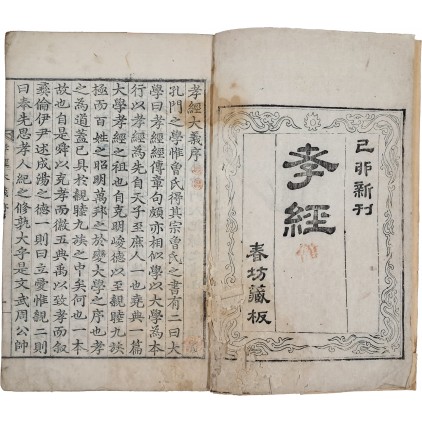 己卯新刊
孝經
春坊藏板
孝經大義序
孔門之學惟曾氏得其宗曾氏之書有二曰大
學曰孝經經傳章句頗亦相似學以大學為本
行以孝經為先自天子至庶人一也堯典一篇
大學孝經之祖也自克明峻德以至親睦九族
極而百姓之昭明萬邦之於變大學之序也孝
之為道蓋已具於親睦九族之中矣何也一本
故也自是舜以克孝而徽五典禹以致孝而敘
彝倫伊尹述成湯之德一則曰立愛惟親二則
曰奉先思孝人紀之修孰大乎是文武周公帥